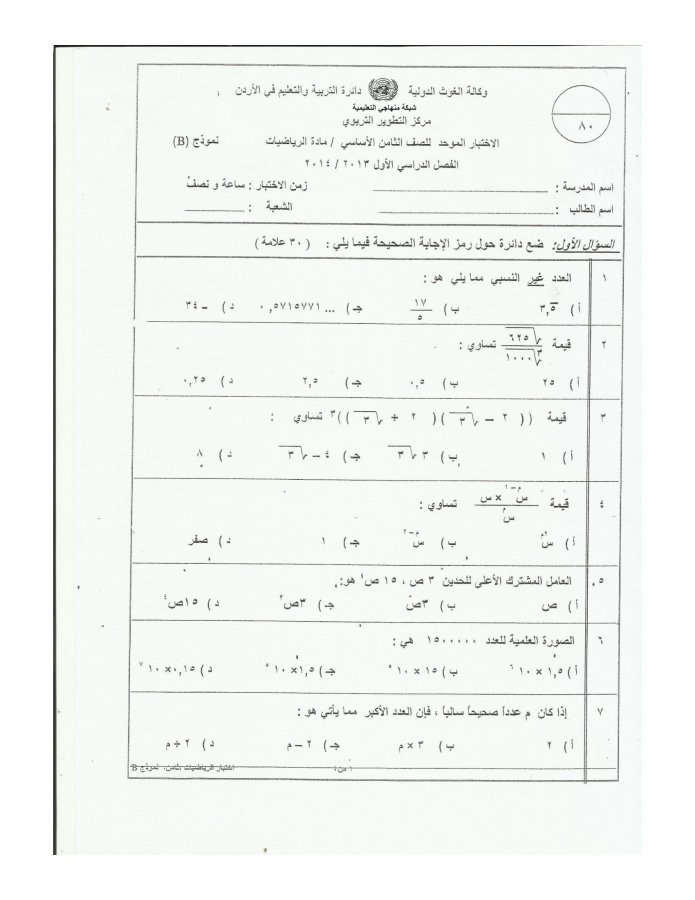 وكالة الغوث الدولية دائرة التربية والتعليم في الأردن
شبكة منهاجي التعليمية
مركز التطوير التربوي
٨٠
الاختبار الموحد للصف الثامن الأساسي / مادة الرياضيات نموذج (B)
الفصل الدراسي الأول ٢٠١٣ / ٢٠١٤
اسم المدرسة : ــــــــــــــــ زمن الاختبار : ساعة و نصف
اسم الطالب : ــــــــــــــــ الشعبة : ــــــــــــــــ
السؤال الأول: ضع دائرة حول رمز الإجابة الصحيحة فيما يلي : ( ٣٠ علامة )
١ العدد غير النسبي مما يلي هو :
أ ) ٣,٥̅ ب ) ١٧/٥ جـ ) ... ٠,٥٧١٥٧٧١ د ) – ٣٤
٢ قيمة √٦٢٥ / ∛١٠٠٠ تساوي :
أ ) ٢٥ ب ) ٠,٥ جـ ) ٢,٥ د ) ٠,٢٥
٣ قيمة (( ٢ – √٣ )( ٢ + √٣ ))³ تساوي :
أ ) ١ ب ) ٣√٣ جـ ) ٤ – √٣ د ) ٨
٤ قيمة س^(م–١) × س / س^م تساوي :
أ ) س^٢م ب ) س^(م–٢) جـ ) ١ د ) صفر
٥ العامل المشترك الأعلى للحدين ٣ ص ، ١٥ ص⁴ هو:
أ ) ص ب ) ٣ص جـ ) ٣ص² د ) ١٥ص⁴
٦ الصورة العلمية للعدد ١٥٠٠٠٠٠ هي :
أ ) ١,٥ × ١٠⁶ ب ) ١٥ × ١٠⁵ جـ ) ١,٥ × ١٠⁵ د ) ٠,١٥ × ١٠⁷
٧ إذا كان م عدداً صحيحاً سالباً ، فإن العدد الأكبر مما يأتي هو :
أ ) ٢ ب ) ٣ × م جـ ) ٢ – م د ) ٢ ÷ م
١ من ٤ اختبار الرياضيات ،ثامن، نموذج B